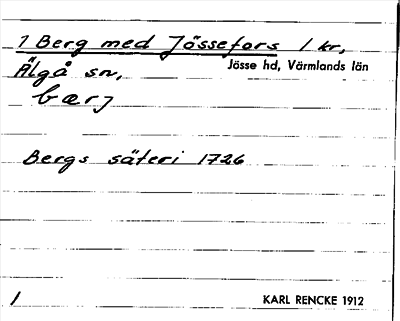 1 Berg med Jössefors 1 kr,
Älgå sn, Jösse hd, Värmlands län
bærj
Bergs säteri 1726
1 KARL RENCKE 1912